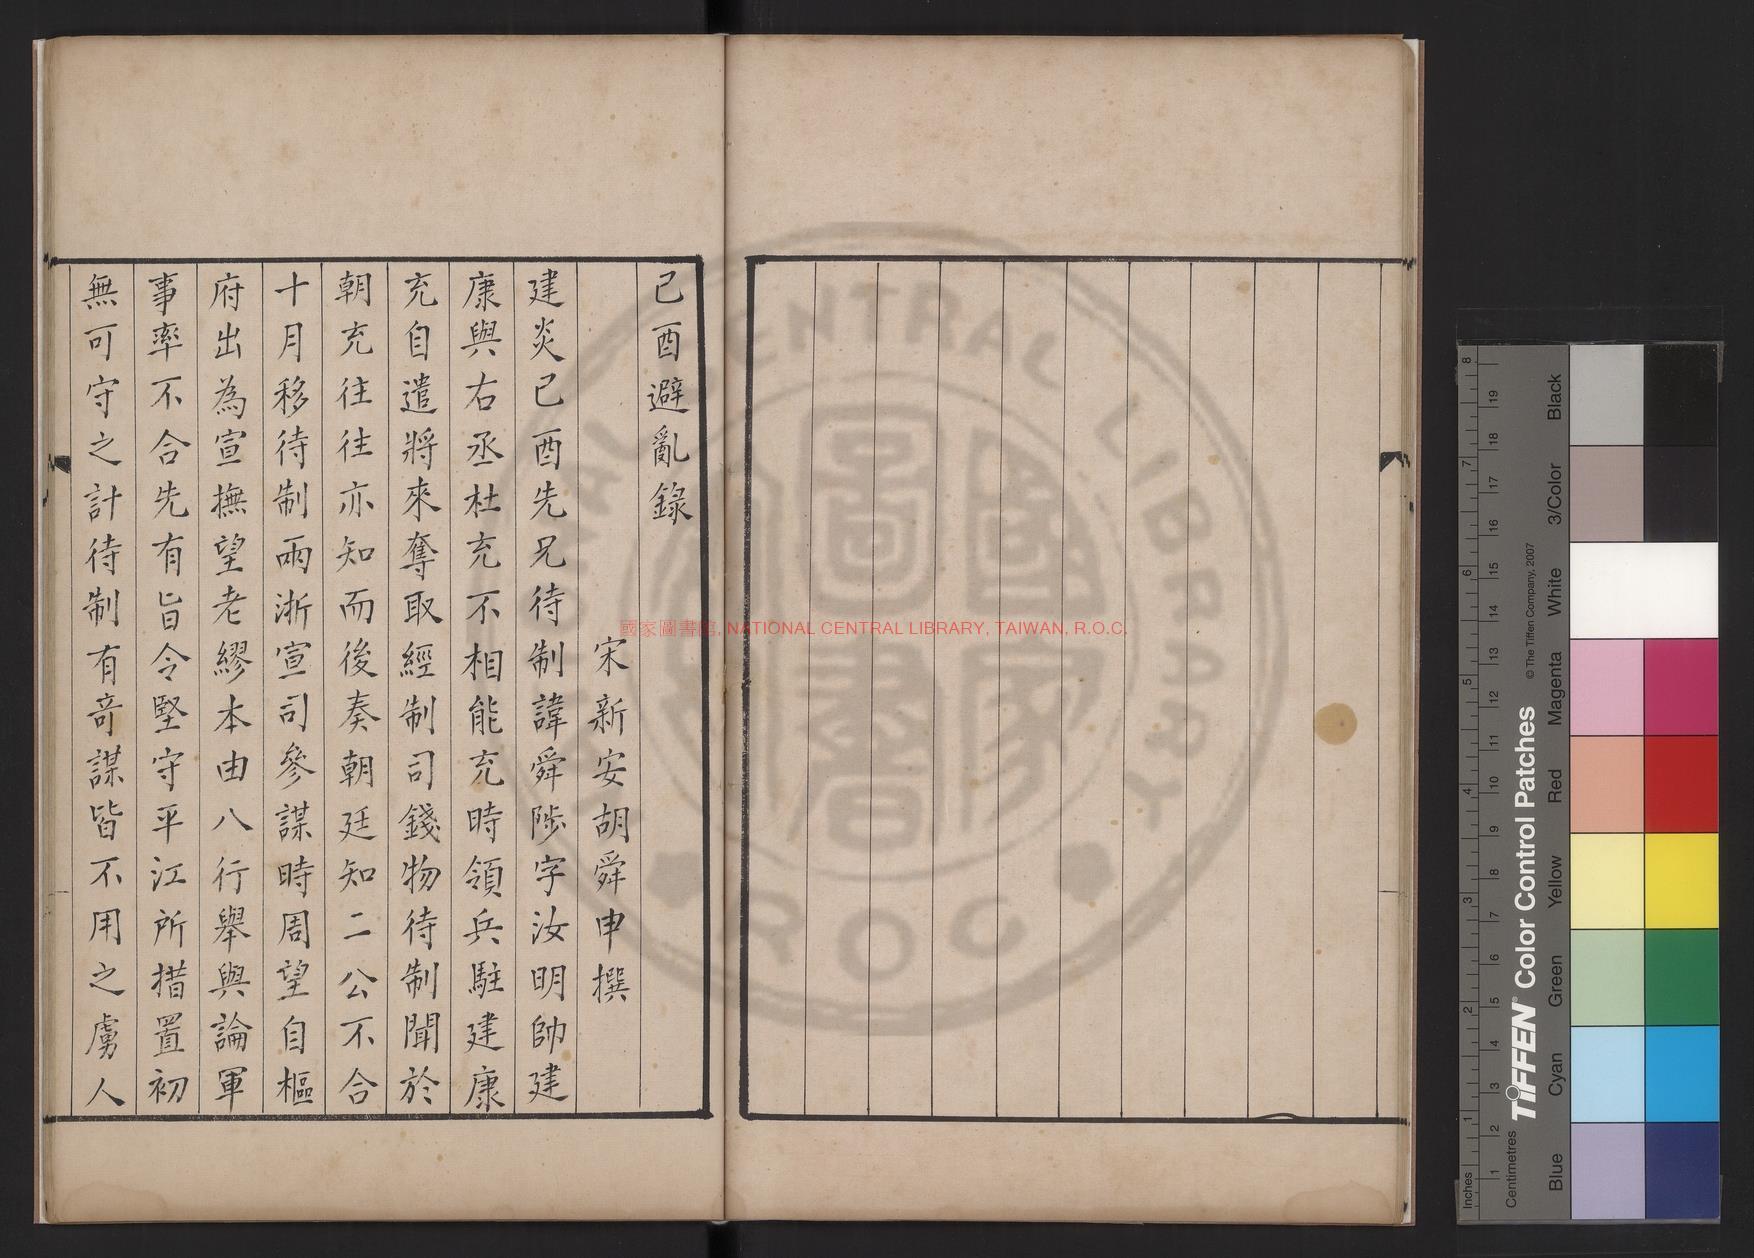 己酉避亂錄
宋新安胡舜申撰
建炎己酉先兄待制諱舜陟字汝明帥建
康與右丞杜充不相能充時領兵駐建康
充自遣將來奪取經制司錢物待制聞於
朝充往往亦知而後奏朝廷知二公不合
十月移待制兩浙宣司參謀時周望自樞
府出為宣撫望老繆本由八行舉與論軍
事率不合先有旨令堅守平江所措置初
無可守之計待制有奇謀皆不用之虜人
國家圖書館, NATIONAL CENTRAL LIBRARY, TAIWAN, R.O.C.
CENTRAL LIBRARY
ROC
TIFFEN® Color Control Patches
© The Tiffen Company, 2007
Inches 1 2 3 4 5 6 7 8
Centimetres 1 2 3 4 5 6 7 8 9 10 11 12 13 14 15 16 17 18 19
Blue
Cyan
Green
Yellow
Red
Magenta
White
3/Color
Black